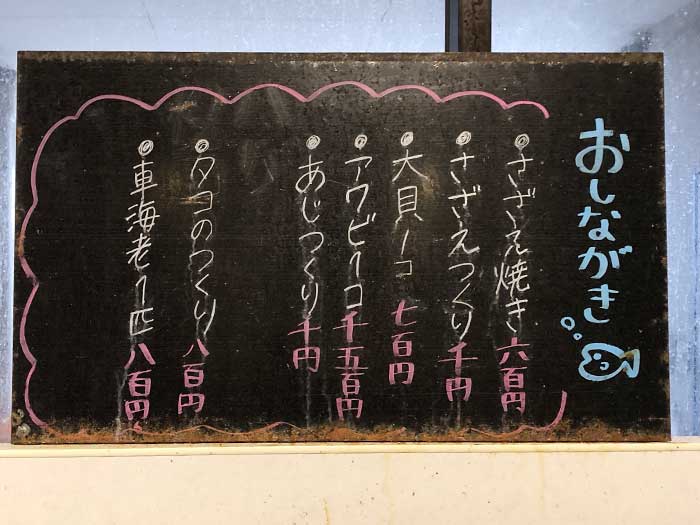 おしながき
◎さざえ焼き 六百円
◎さざえつくり 千円
◎大貝1コ 七百円
◎アワビ1コ 千五百円
◎あじつくり 千円
◎タコのつくり 八百円
◎車海老1匹 八百円